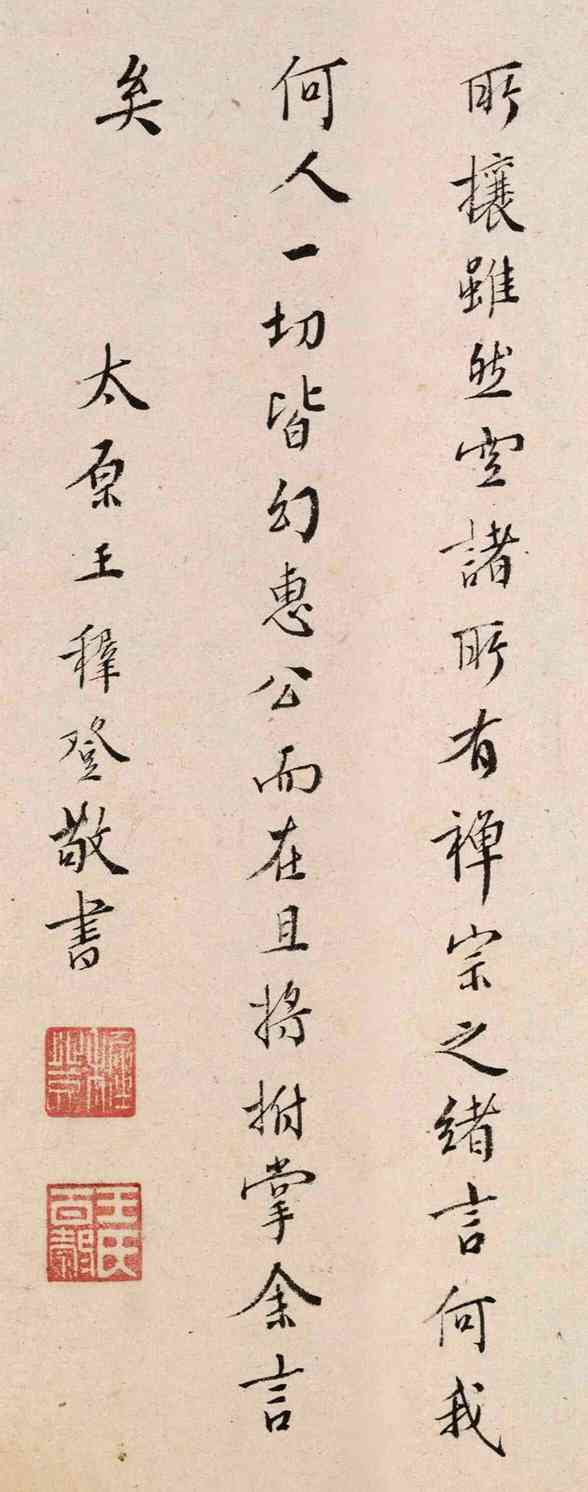 所攘雖然空諸所有禪宗之緒言何我
何人一切皆幻惠公而在且將拊掌余言
矣
太原王穉登敬書
王氏百穀